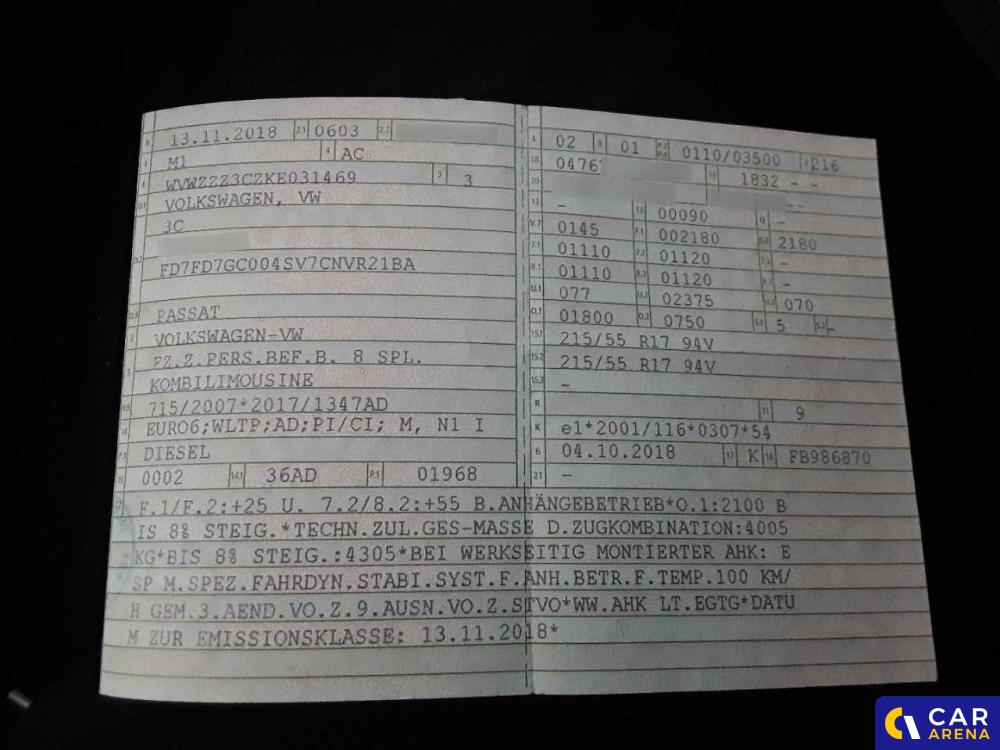 B 13.11.2018 2.1 0603 2.2
J M1 4 AC
E WVWZZZ3CZKE031469 3 3
D.1 VOLKSWAGEN, VW
3C
D.2 FD7FD7GC004SV7CNVR21BA
D.3 PASSAT
2 VOLKSWAGEN-VW
5 FZ.Z.PERS.BEF.B. 8 SPL.
KOMBILIMOUSINE
V.9 715/2007*2017/1347AD
14 EURO6;WLTP;AD;PI/CI; M, N1 I
P.3 DIESEL
10 0002 14.1 36AD P.1 01968
L 02 9 01 P.2 P.4 0110/03500 T 216
18 0476 19 1832 - -
20 - -
12 - 13 00090 Q -
V.7 0145 F.1 002180 F.2 2180
7.1 01110 7.2 01120 7.3 -
8.1 01110 8.2 01120 8.3 -
U.1 077 U.2 02375 U.3 070
O.1 01800 O.2 0750 S.1 5 S.2 -
15.1 215/55 R17 94V
15.2 215/55 R17 94V
15.3 -
R 11 9
K e1*2001/116*0307*54
6 04.10.2018 17 K 16 FB986870
21 -
22 F.1/F.2:+25 U. 7.2/8.2:+55 B.ANHÄNGEBETRIEB*O.1:2100 B
IS 8% STEIG.*TECHN.ZUL.GES-MASSE D.ZUGKOMBINATION:4005
KG*BIS 8% STEIG.:4305*BEI WERKSEITIG MONTIERTER AHK: E
SP M.SPEZ.FAHRDYN.STABI.SYST.F.ANH.BETR.F.TEMP.100 KM/
H GEM.3.AEND.VO.Z.9.AUSN.VO.Z.STVO*WW.AHK LT.EGTG*DATU
M ZUR EMISSIONSKLASSE: 13.11.2018*
CAR
ARENA